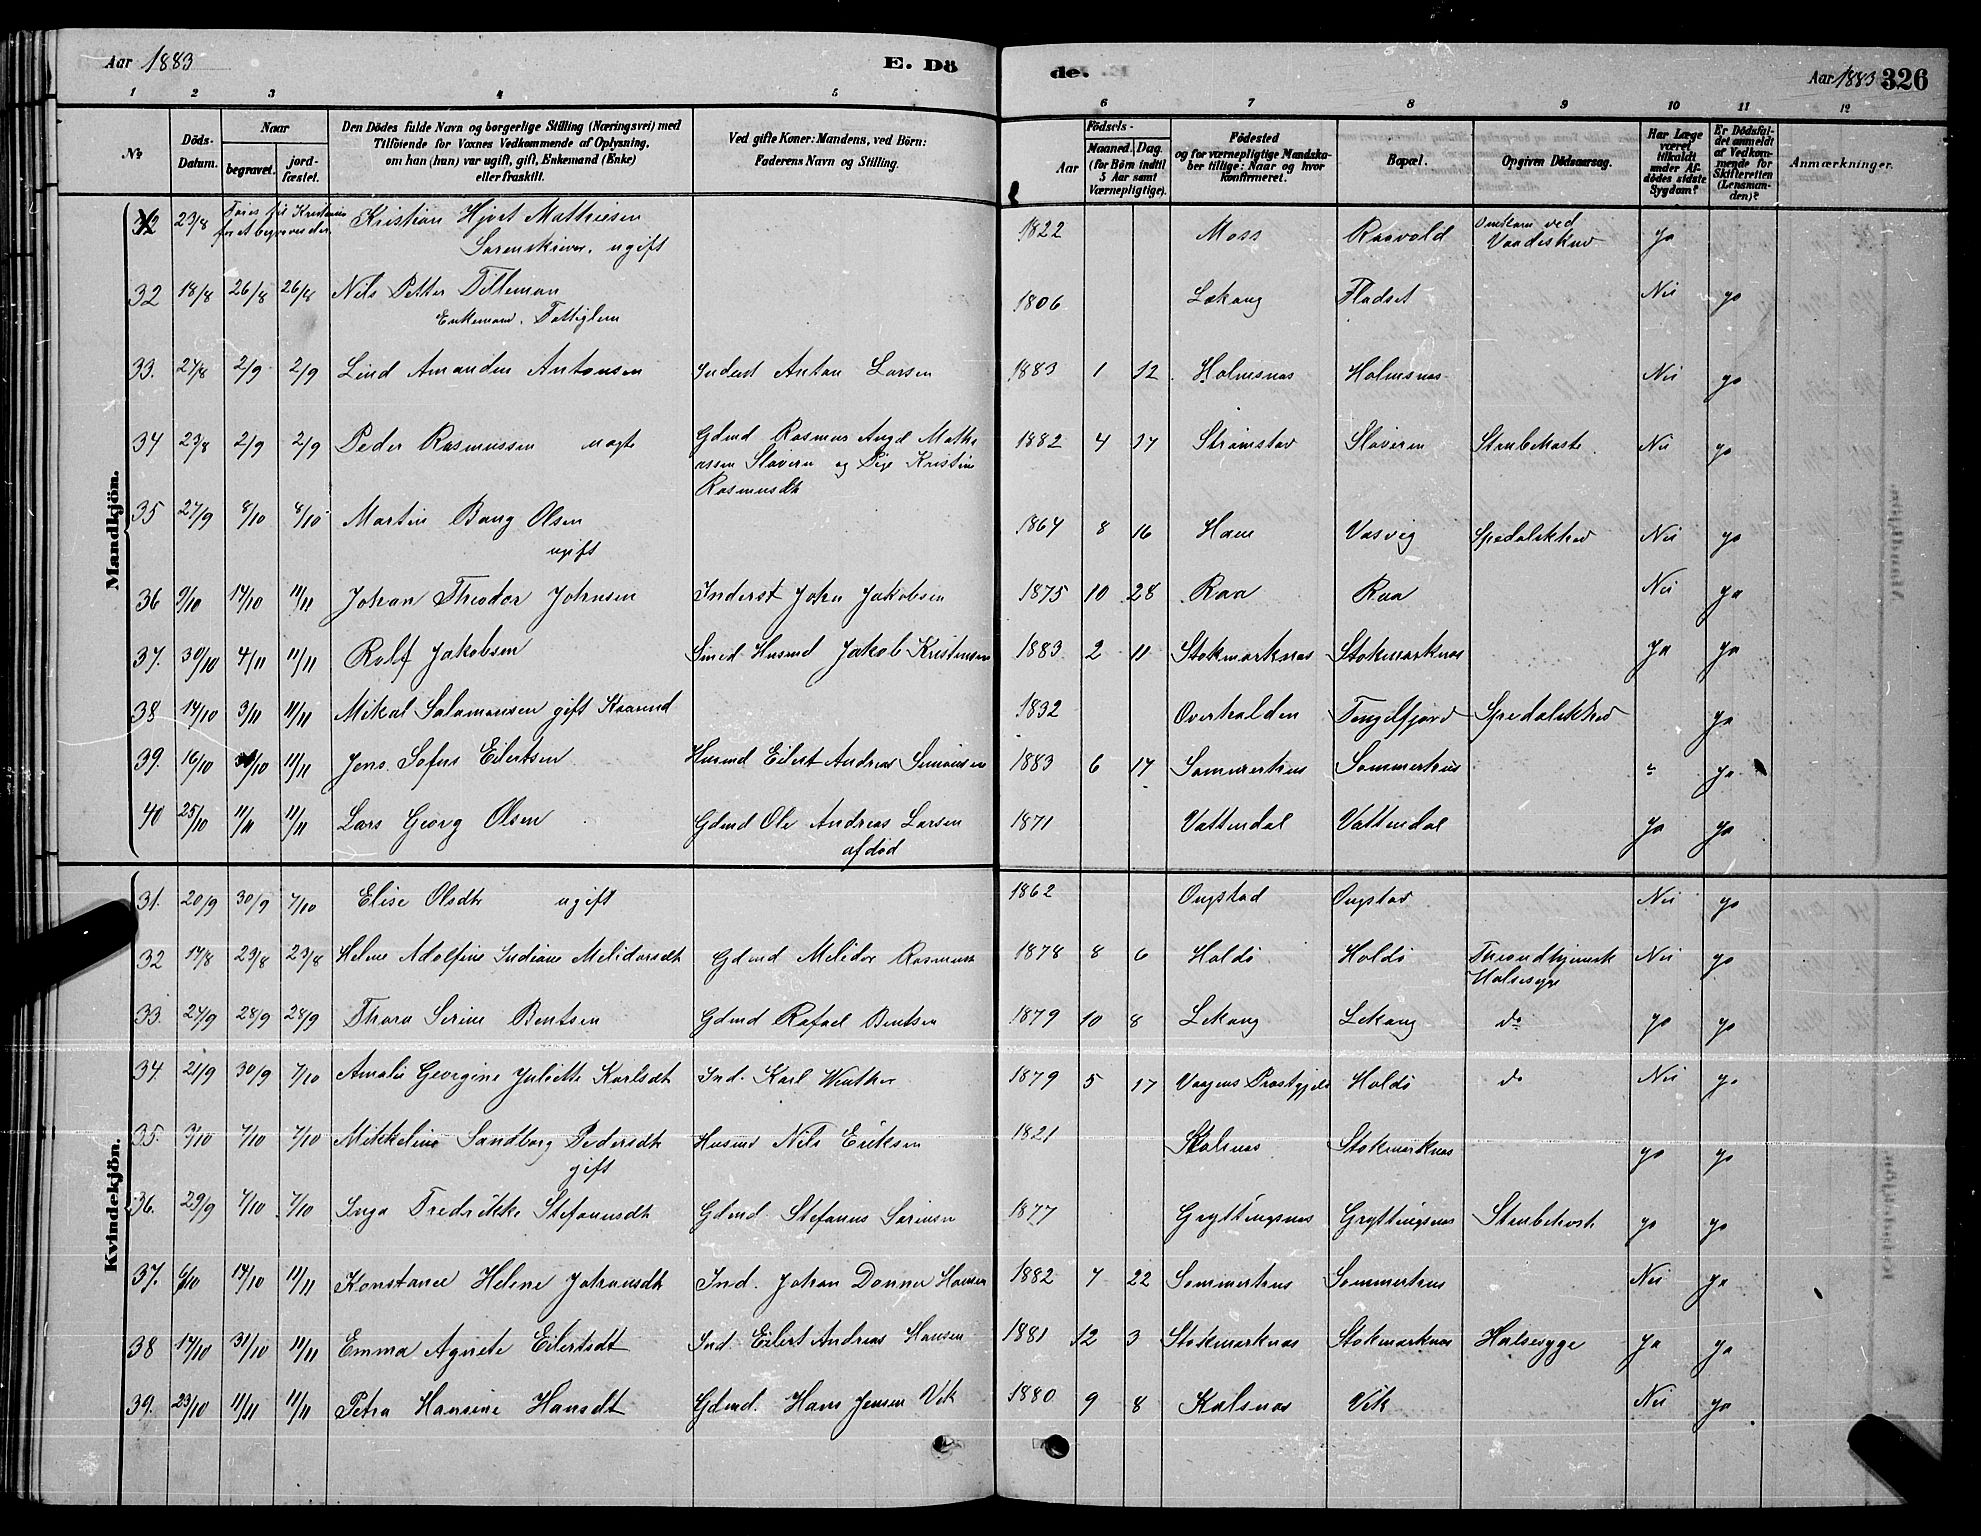 Aar 1883 E. Dö de. Aar 1883 326
1 2 3 4 5 6 7 8 9 10 11 12
No. Döds-Datum. Naar begravet. jord-fæstet. Den Dödes fulde Navn og borgerlige Stilling (Næringsvei) med Tilföiende for Voxnes Vedkommende af Oplysning, om han (hun) var ugift, gift, Enkemand (Enke) eller fraskilt. Ved gifte Koner: Mandens, ved Börn: Faderens Navn og Stilling. Födsels- Aar Maaned. Dag. (for Börn indtil 5 Aar samt Værnepligtige). Födested og for værnepligtige Mandskaber tillige: Naar og hvor konfirmeret. Bopæl. Opgiven Dödsaarsag. Har Læge været tilkaldt under Afdödes sidste Sygdom? Er Dödsfaldet anmeldt af Vedkommende for Skifteretten (Lensmanden)? Anmærkninger.
Mandkjön.
23/8 Kristian Hjort Mathiesen 1822 Moss Raavold Omkom ved Vaadeskud Ja
Sorenskriver, ugift
32 18/8 26/8 26/8 Nils Petter Tilleman 1806 Lekang Fladset Nei ja
Enkemand, Fattiglem
33. 27/8 2/9 2/9 Lind Amandus Antonsen Inderst Anton Larsen 1883 1 12 Holmsnæs Holmsnæs Nei ja
34 23/8 2/9 2/9 Peder Rasmussen uægte Gdmd Rasmus Angel Mathi 1882 4 27 Slaveren Strubehoste Nei ja
assen Slaveren og Pige Kristine
Rasmusdt
35 27/9 8/10 8/10 Martin Bang Olsen 1864 8 16 Ham Vasvig Spedalskhed Nei ja
ugift
36 9/10 14/10 11/11 Johan Theodor Johnsen Inderst John Jakobsen 1875 10 28 Raa Raa Nei ja
37. 30/10 4/11 11/11 Rolf Jakobsen Smed Husmd Jakob Kristensen 1883 2 11 Stokmarknæs Stokmarknæs Ja ja
38 14/10 3/11 11/11 Mikal Salamonsen gift Kaarmd 1832 Overhalden Tengelfjord Spedalskhed ja
39. 16/10 11/11 Jens Sofus Eilertsen Husmd Eilert Andreas Simonsen 1883 6 17 Sommerhus Sommerhus " ja
40 25/10 11/11 11/11 Lars Georg Olsen Gdmd Ole Andreas Larsen 1871 Vattendal Vattendal Ja ja
afdød
Kvindekjön.
31. 20/9 30/9 7/10 Elise Olsdtr ugift 1862 Ongstad Ongstad Nei ja
32 17/8 23/8 23/8 Helene Adolfine Indiane Melidorsdt Gdmd Melidor Rasmussen 1878 8 6 Holdø Holdø Throndhjemsk Nei ja
Halssyge
33. 24/9 28/9 28/9 Thora Serine Bentsen Gdmd Rafael Bentsen 1879 10 8 Lekang Lekang do ja ja
34. 21/9 30/9 7/10 Amalie Georgine Juliette Karlsdt Ind. Karl Winther 1879 5 17 Vaagens Prestgjeld Holdø do Nei ja
35. 3/10 7/10 7/10 Mikkeline Sandborg Pedersdt Husmd Nils Eriksen 1821 Skalnæs Stokmarknæs ja ja
gift
36. 29/9 7/10 7/10 Inga Fredrikke Stefanusdt Gdmd. Stefanus Sørensen 1877 Gryttingsnæs Gryttingsnæs Strubehoste ja ja
37. 6/10 14/10 11/11 Konstance Helene Johansdt Ind. Johan Donner Hansen 1882 7 22 Sommerhus Sommerhus Nei ja
38 17/10 31/10 11/11 Emma Agnete Eilertsdt Ind. Eilert Andreas Hansen 1881 12 3 Stokmarknæs Stokmarknæs Halssyge Ja ja
39. 23/10 11/11 11/11 Petra Hansine Hansdt Gdmd. Hans Jensen Vik 1880 9 8 Kalsnæs Vik Nei ja